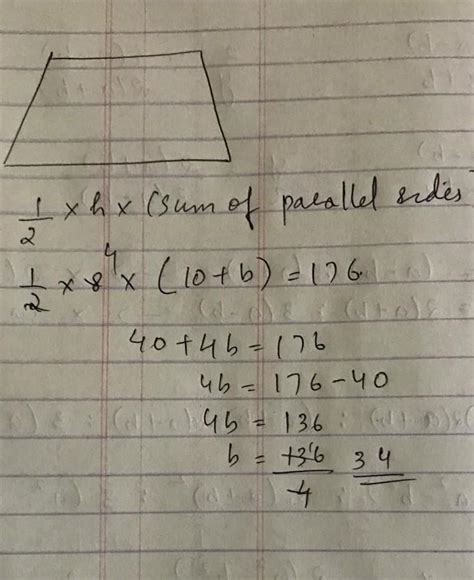 1/2 × h × (sum of parallel sides
1/2 × 8 4 × (10 + b) = 176
40 + 4b = 176
4b = 176 - 40
4b = 136
b = 136/4 34